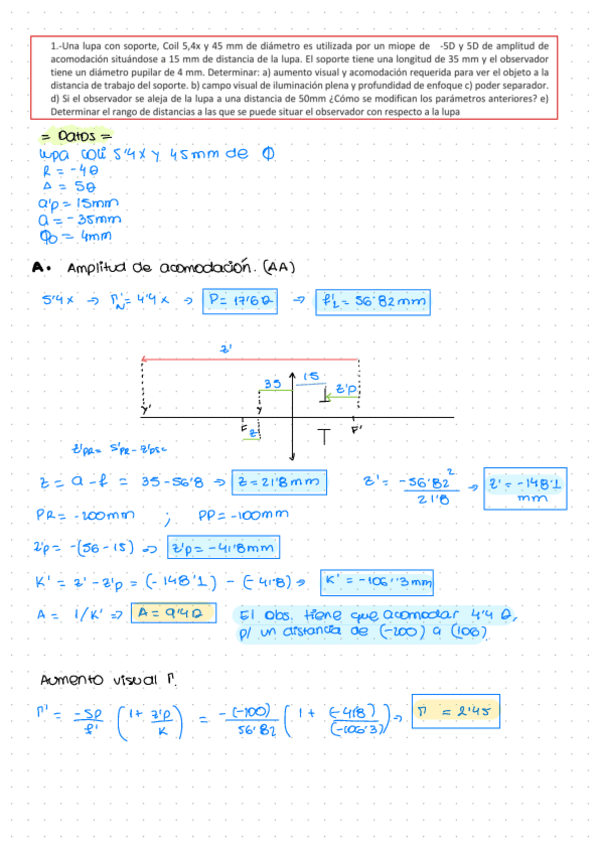 1.-Una lupa con soporte, Coil 5,4x y 45 mm de diámetro es utilizada por un miope de -5D y 5D de amplitud de
acomodación situándose a 15 mm de distancia de la lupa. El soporte tiene una longitud de 35 mm y el observador
tiene un diámetro pupilar de 4 mm. Determinar: a) aumento visual y acomodación requerida para ver el objeto a la
distancia de trabajo del soporte. b) campo visual de iluminación plena y profundidad de enfoque c) poder separador.
d) Si el observador se aleja de la lupa a una distancia de 50mm ¿Cómo se modifican los parámetros anteriores? e)
Determinar el rango de distancias a las que se puede situar el observador con respecto a la lupa
= Datos =
lupa coli 5'4x y 45mm de Φ
R = -4D
A = 5D
a'p = 15mm
a = -35mm
Φo = 4mm
A. Amplitud de acomodación. (AA)
5'4x → Γ'N = 4'4x → P = 17'6D → f'L = 56'82mm
z'
35 15 z'p
y' y F F'
z
z'PR = S'PR - z'PSC
z = a - f = 35 - 56'8 → z = 21'8mm z' = -56'82² / 21'8 → z' = -148'1 mm
PR = -200mm ; PP = -100mm
z'p = -(56 - 15) => z'p = -41'8mm
K' = z' - z'p = (-148'1) - (-41'8) → K' = -106'3mm
A = 1/K' => A = 9'4D El obs. tiene que acomodar 4'4 D,
p/ un distancia de (-200) a (106)
Aumento visual Γ.
Γ' = -SP / f' (1 + z'p / K) = -(-100) / 56'82 (1 + (-41'8) / (-106'3)) → Γ = 2'45